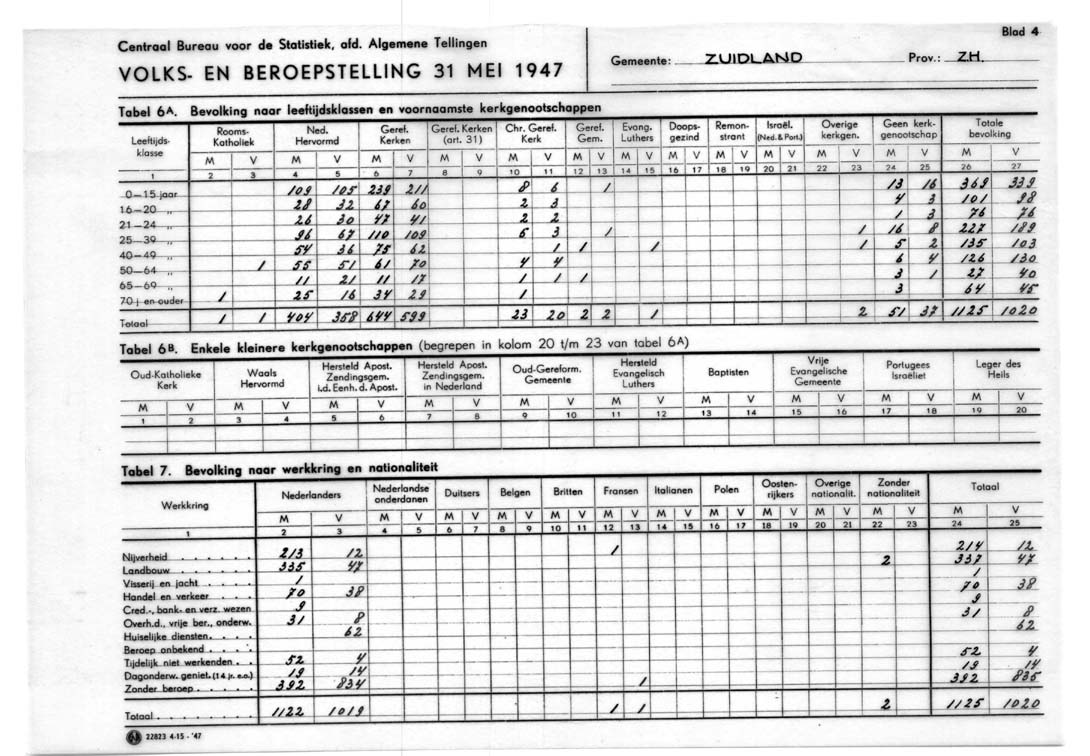 Blad 4
Centraal Bureau voor de Statistiek, afd. Algemene Tellingen
VOLKS- EN BEROEPSTELLING 31 MEI 1947
Gemeente: ZUIDLAND Prov.: Z.H.
Tabel 6A. Bevolking naar leeftijdsklassen en voornaamste kerkgenootschappen
Leeftijds- Rooms- Ned. Geref. Geref. Kerken Chr. Geref. Geref. Evang. Doops- Remon- Israël. Overige Geen kerk- Totale
klasse Katholiek Hervormd Kerken (art. 31) Kerk Gem. Luthers gezind strant (Ned. & Port.) kerkgen. genootschap bevolking
M V M V M V M V M V M V M V M V M V M V M V M V M V
1 2 3 4 5 6 7 8 9 10 11 12 13 14 15 16 17 18 19 20 21 22 23 24 25 26 27
0—15 jaar 109 105 239 211 8 6 1 13 16 369 339
16—20 „ 28 32 67 60 2 3 4 3 101 98
21—24 „ 26 30 47 41 2 2 1 3 76 76
25—39 „ 96 67 110 109 5 3 1 1 16 8 227 189
40—49 „ 54 36 75 62 1 1 1 1 5 2 135 103
50—64 „ 1 55 51 61 70 4 4 6 4 126 130
65—69 „ 11 21 11 17 1 1 1 3 1 27 40
70 j. en ouder 1 25 16 34 29 1 3 64 45
Totaal 1 1 404 358 644 599 23 20 2 2 1 2 51 37 1125 1020
Tabel 6B. Enkele kleinere kerkgenootschappen (begrepen in kolom 20 t/m 23 van tabel 6A)
Oud-Katholieke Kerk Waals Hervormd Hersteld Apost. Zendingsgem. i.d. Eenh. d. Apost. Hersteld Apost. Zendingsgem. in Nederland Oud-Gereform. Gemeente Hersteld Evangelisch Luthers Baptisten Vrije Evangelische Gemeente Portugees Israëliet Leger des Heils
M V M V M V M V M V M V M V M V M V M V
1 2 3 4 5 6 7 8 9 10 11 12 13 14 15 16 17 18 19 20
Tabel 7. Bevolking naar werkkring en nationaliteit
Werkkring Nederlanders Nederlandse onderdanen Duitsers Belgen Britten Fransen Italianen Polen Oosten-rijkers Overige nationalit. Zonder nationaliteit Totaal
M V M V M V M V M V M V M V M V M V M V M V M V
1 2 3 4 5 6 7 8 9 10 11 12 13 14 15 16 17 18 19 20 21 22 23 24 25
Nijverheid . . . . . . 213 12 1 214 12
Landbouw . . . . . . 335 47 2 337 47
Visserij en jacht . . . . 1 1
Handel en verkeer . . . . 70 38 70 38
Cred.-, bank- en verz. wezen 9 9
Overh.d., vrije ber., onderw. 31 8 31 8
Huiselijke diensten. . . . 62 62
Beroep onbekend . . . .
Tijdelijk niet werkenden . . 52 4 52 4
Dagonderw. geniet. (14 jr. e.o.) 19 14 19 14
Zonder beroep . . . . . 392 834 1 392 835
Totaal . . . . . . . . 1122 1019 1 1 2 1125 1020
22823 4-15 - '47